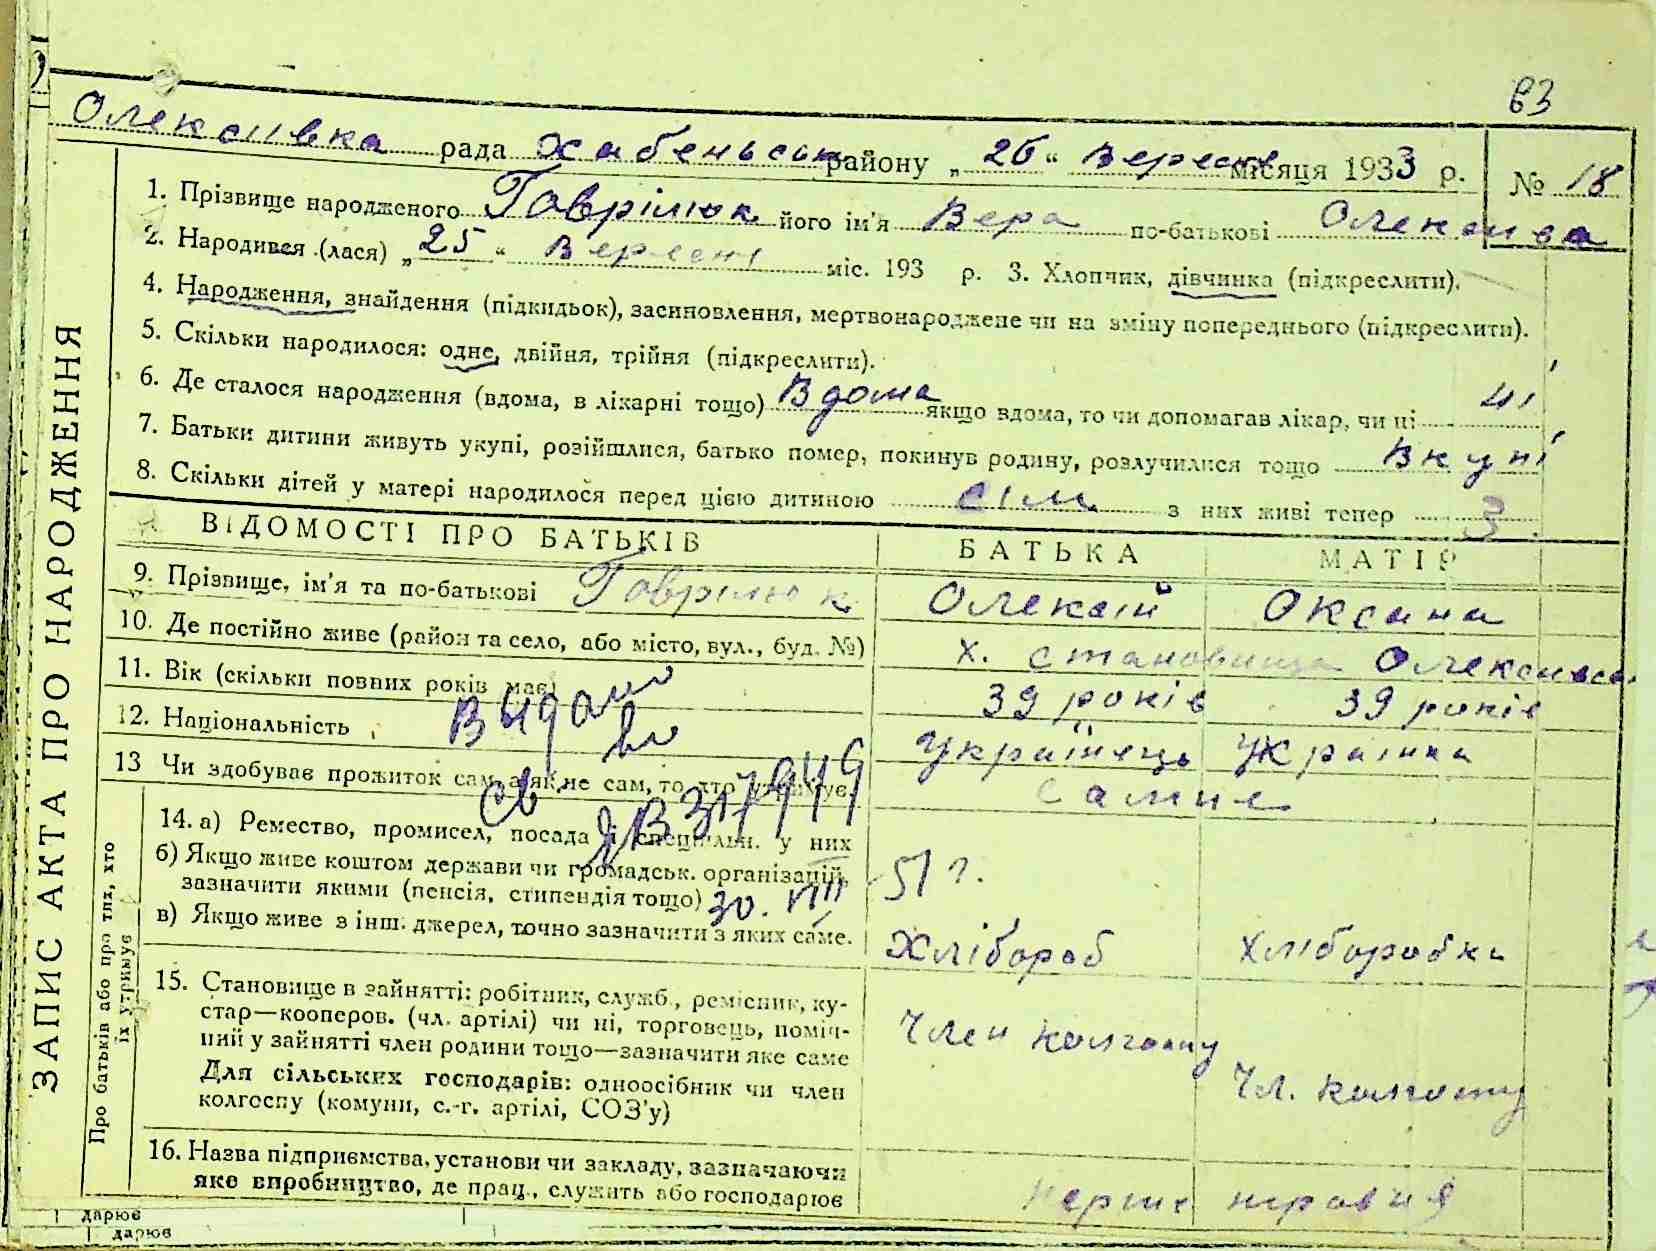 63
Олексивка рада Хабенськ району „ 26 “ Вересня місяця 1933 р. № 18
ЗАПИС АКТА ПРО НАРОДЖЕННЯ
1. Прізвище народженого Гаврілюк його ім'я Вера по-батькові Олексивна
2. Народився (лася) „ 25 “ Вересні міс. 193 р. 3. Хлопчик, дівчинка (підкреслити).
4. Народження, знайдення (підкидьок), засиновлення, мертвонароджене чи на зміну попереднього (підкреслити).
5. Скільки народилося: одне, двійня, трійня (підкреслити).
6. Де сталося народження (вдома, в лікарні тощо) Вдома якщо вдома, то чи допомагав лікар, чи ні ні
7. Батьки дитини живуть укупі, розійшлися, батько помер, покинув родину, розлучилися тощо Вкупі
8. Скільки дітей у матері народилося перед цією дитиною сім з них живі тепер 3
ВІДОМОСТІ ПРО БАТЬКІВ БАТЬКА МАТІР
9. Прізвище, ім'я та по-батькові Гаврілюк Олексій Оксана
10. Де постійно живе (район та село, або місто, вул., буд. №) х. становища Олексивка
11. Вік (скільки повних років має) 39 років 39 років
12. Національність Українець Украінка
Видано
13 Чи здобуває прожиток сам, а як не сам, то хто утримує. Самие
св. ЯВ 317949
Про батьків або про тих, хто їх утримує
14. а) Ремество, промисел, посада і спеціяльн. у них
б) Якщо живе коштом держави чи громадськ. організацій,
зазначити якими (пенсія, стипендія тощо) 30. VIII 51 г.
в) Якщо живе з інш. джерел, точно зазначити з яких саме. Хлібороб Хліборобка
15. Становище в зайнятті: робітник, служб., ремісник, ку-
стар—кооперов. (чл. артілі) чи ні, торговець, поміч-
ний у зайнятті член родини тощо—зазначити яке саме Член колгоспу
Для сільських господарів: одноосібник чи член
колгоспу (комуни, с.-г. артілі, СОЗ'у) Чл. колгоспу
16. Назва підприємства, установи чи закладу, зазначаючи
яке виробництво, де прац., служить або господарює
дарює
дарює